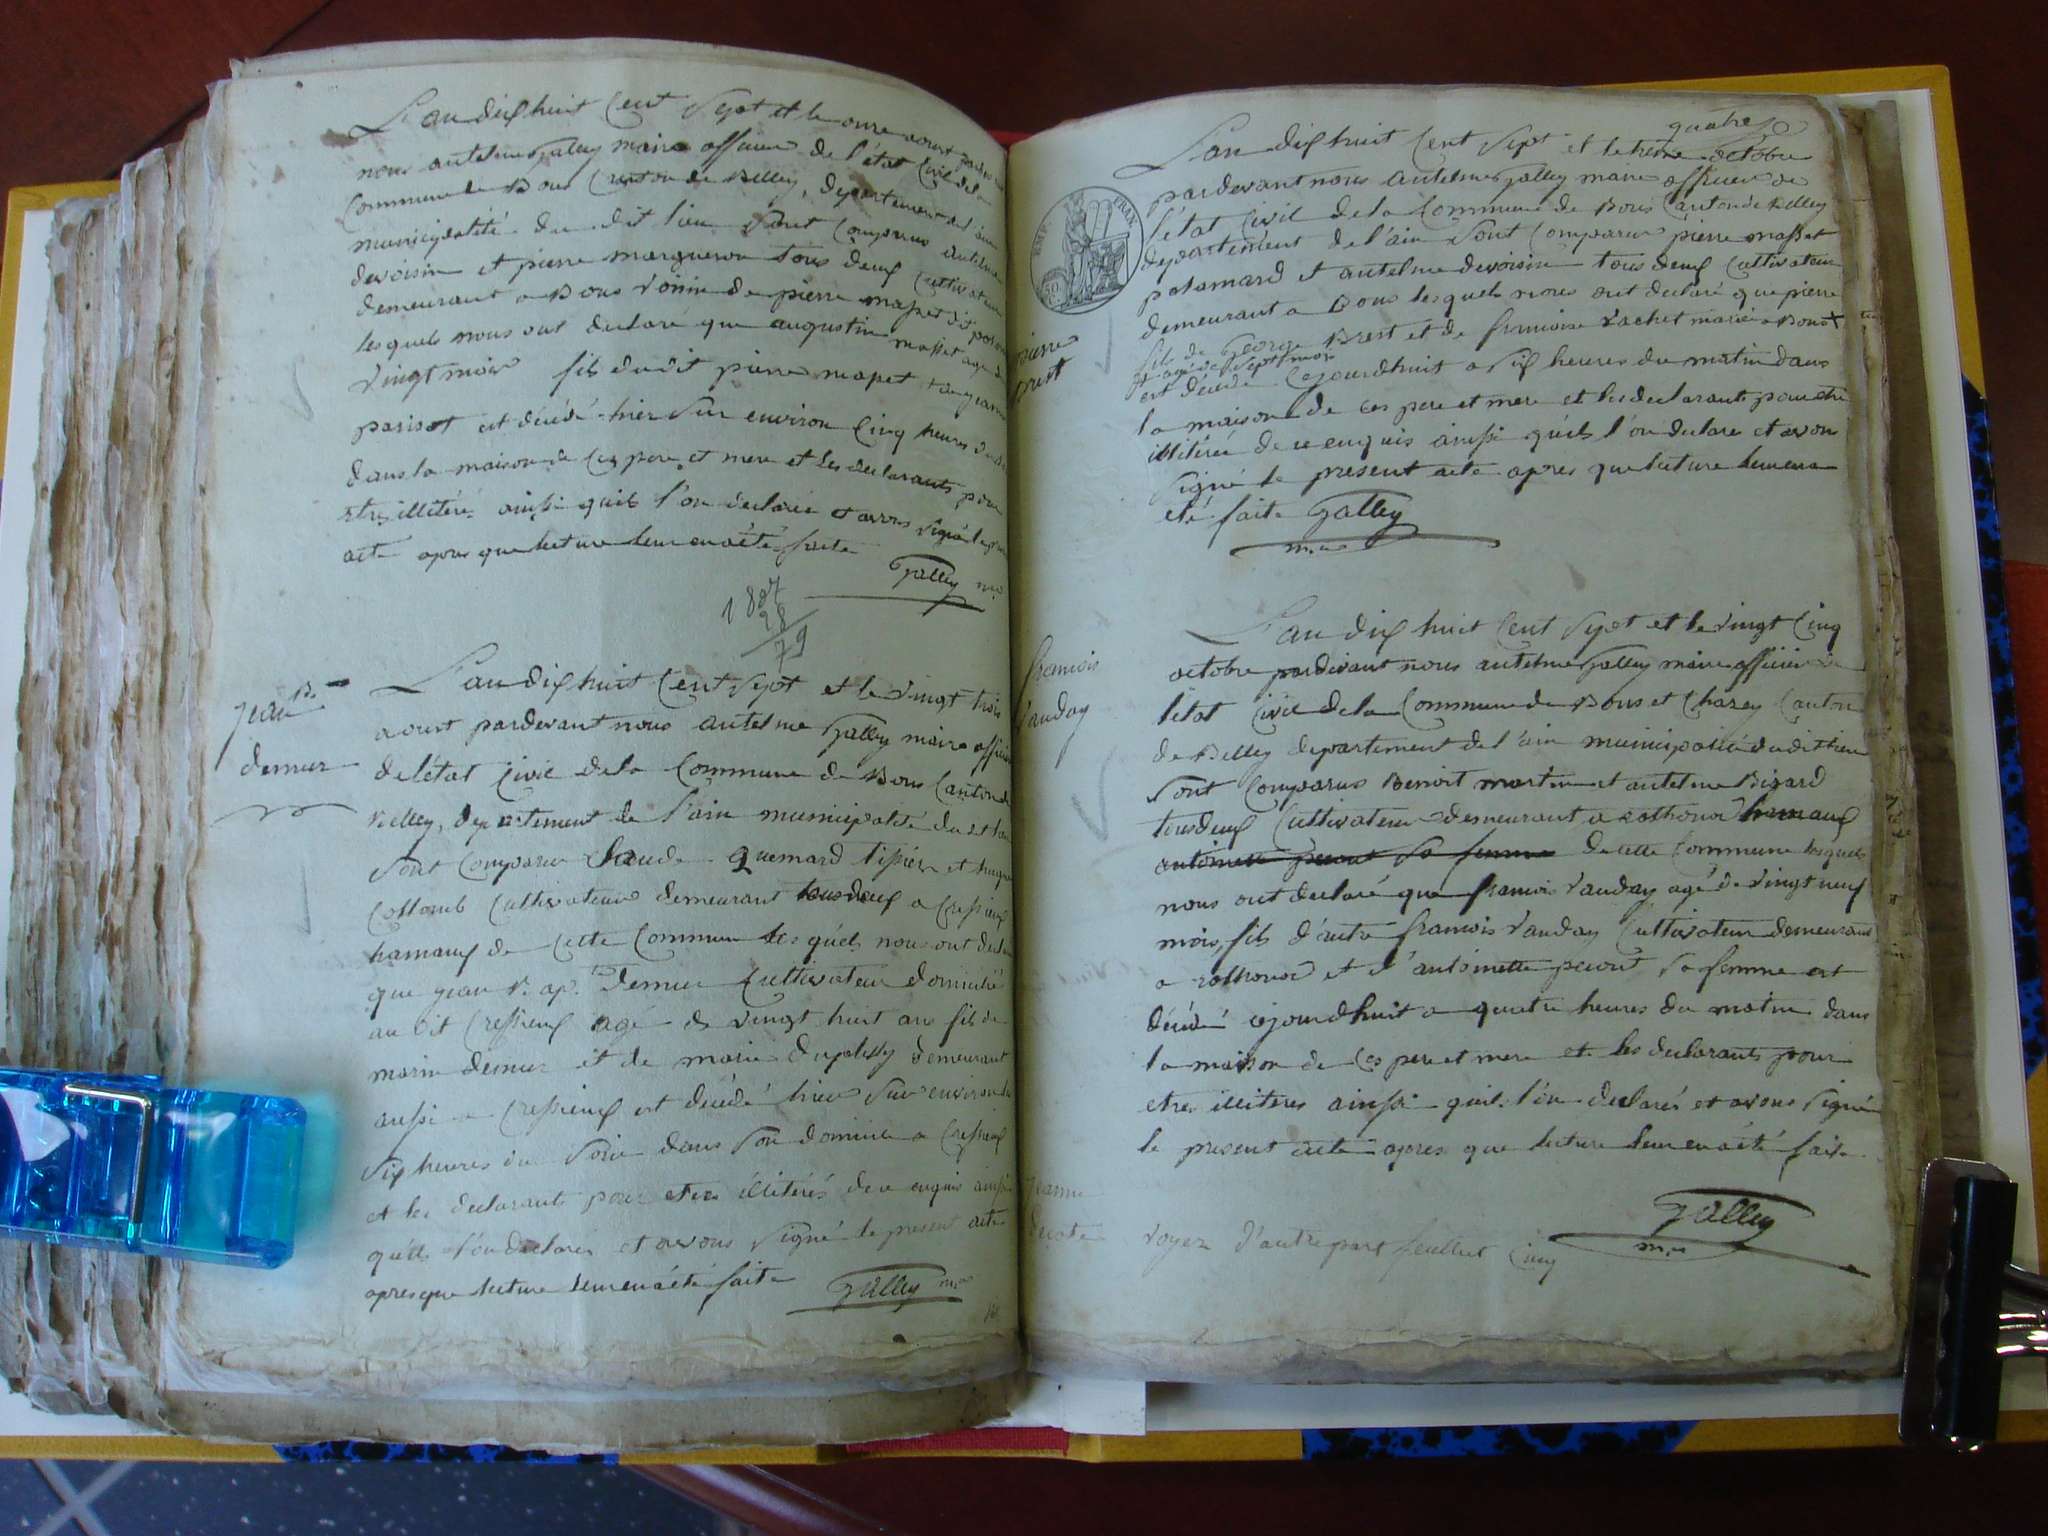 L'an dix huit Cent Sept et le onze aoust
nous antelme Galley maire officier de l'état Civil de la
Commune de Bons Canton de Belley, departement de l'ain
municipalité du dit lieu Sont Comparus antelme
devoisin et pierre margueron tous deux Cultivateurs
demeurant a Bons voisin de pierre masset dit
lesquels nous ont declaré que augustin masset agé de
vingt mois fils du dit pierre masset
parisot est décédé hier Sur environ Cinq heures
dans la maison de Ces pere et mere et les declarants pour
etre illitéré ainsi quils l'on declaré et avons Signé le
acte apres que lecture leur en a été faite
Galley m.re
1807
28
79
Jean B.te
demur
L'an dix huit Cent Sept et le vingt trois
aoust pardevant nous antelme Galley maire officier
de l'état Civil de la Commune de Bons Canton de
Belley, departement de l'ain municipalité du dit lieu
Sont Comparus Claude quemard tissier et hugue
Collomb Cultivateurs demeurant tous deux a Cressieux
hamaux de Cette Commune lesquels nous ont declaré
que jean B. ap. demur Cultivateur domicilié
au dit Cressieux agé de vingt huit ans fils de
marin demur et de marie dupelissy demeurant
aussi a Cressieux est décédé hier Sur environ
Six heures du Soir dans Son domicile a Cressieux
et les declarants pour etres illitérés de ce enquis ainsi
quils l'on declarés et avons Signé le present acte
apres que lecture leur en a été faite Galley m.re
quatre
L'an dix huit Cent Sept et le treize octobre
pardevant nous antelme Galley maire officier de
l'état Civil de la Commune de Bons Canton de Belley
departement de l'ain Sont Comparus pierre masset
palamard et antelme devoisin tous deux Cultivateurs
demeurant a Bons lesquels nous ont declaré que pierre
fils de George Brest et de francoise vachet mariés a Bons +
et agé de Sept mois
est décédé Cejourdhuit a Six heures du matin dans
la maison de Ces pere et mere et les declarants pour etre
illitérée de ce enquis ainsi quils l'on declare et avons
Signé le present acte apres que lecture leur en a
été faite Galley
m.re
EMP. FRAN.
pierre
brest
francois
vauday
L'an dix huit Cent Sept et le vingt Cinq
octobre pardevant nous antelme Galley maire officier de
l'état Civil de la Commune de Bons et Chazey Canton
de Belley departement de l'ain municipalité du dit lieu
Sont Comparus Benoit martin et antelme Bigard
tous deux Cultivateurs demeurant a rothonod hamaux
antoinette perout Sa femme de cette Commune lesquels
nous ont declaré que francois vauday agé de vingt neuf
mois, fils d'autre francois vauday Cultivateur demeurant
a rothonod et d'antoinette perout Sa femme est
décédé cejourdhuit a quatre heures du matin dans
la maison de Ces pere et mere et les declarants pour
etres illiteres ainsi quils l'on declarés et avons Signé
le present acte apres que lecture leur en a été faite
Galley
m.re
jeanne
voyez d'autre part feuillet Cinq